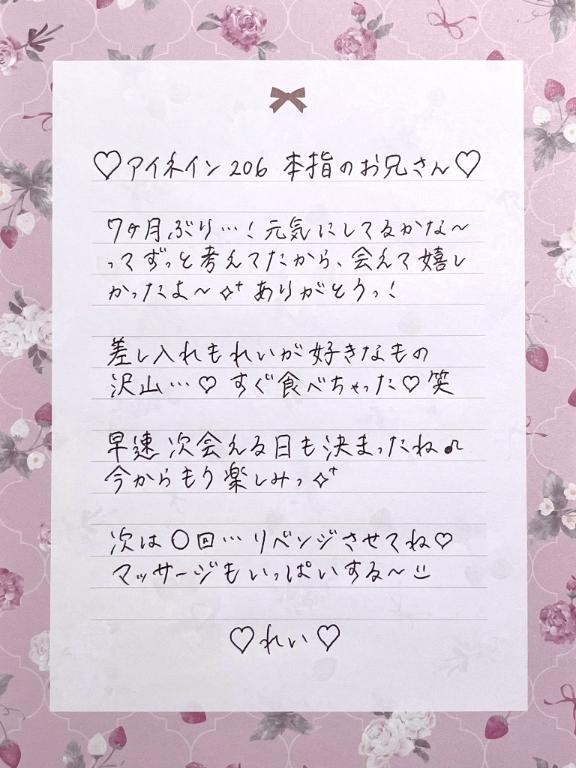 ♡アイネイン206 本指のお兄さん♡
7ヶ月ぶり…!元気にしてるかな〜
ってずっと考えてたから、会えて嬉し
かったよ〜✧⁺ ありがとうっ!
差し入れもれいが好きなもの
沢山…♡ すぐ食べちゃった♡笑
早速 次会える日も決まったね♪
今からもう楽しみっ✧⁺
次は〇回… リベンジさせてね♡
マッサージもいっぱいする〜☺
♡れい♡